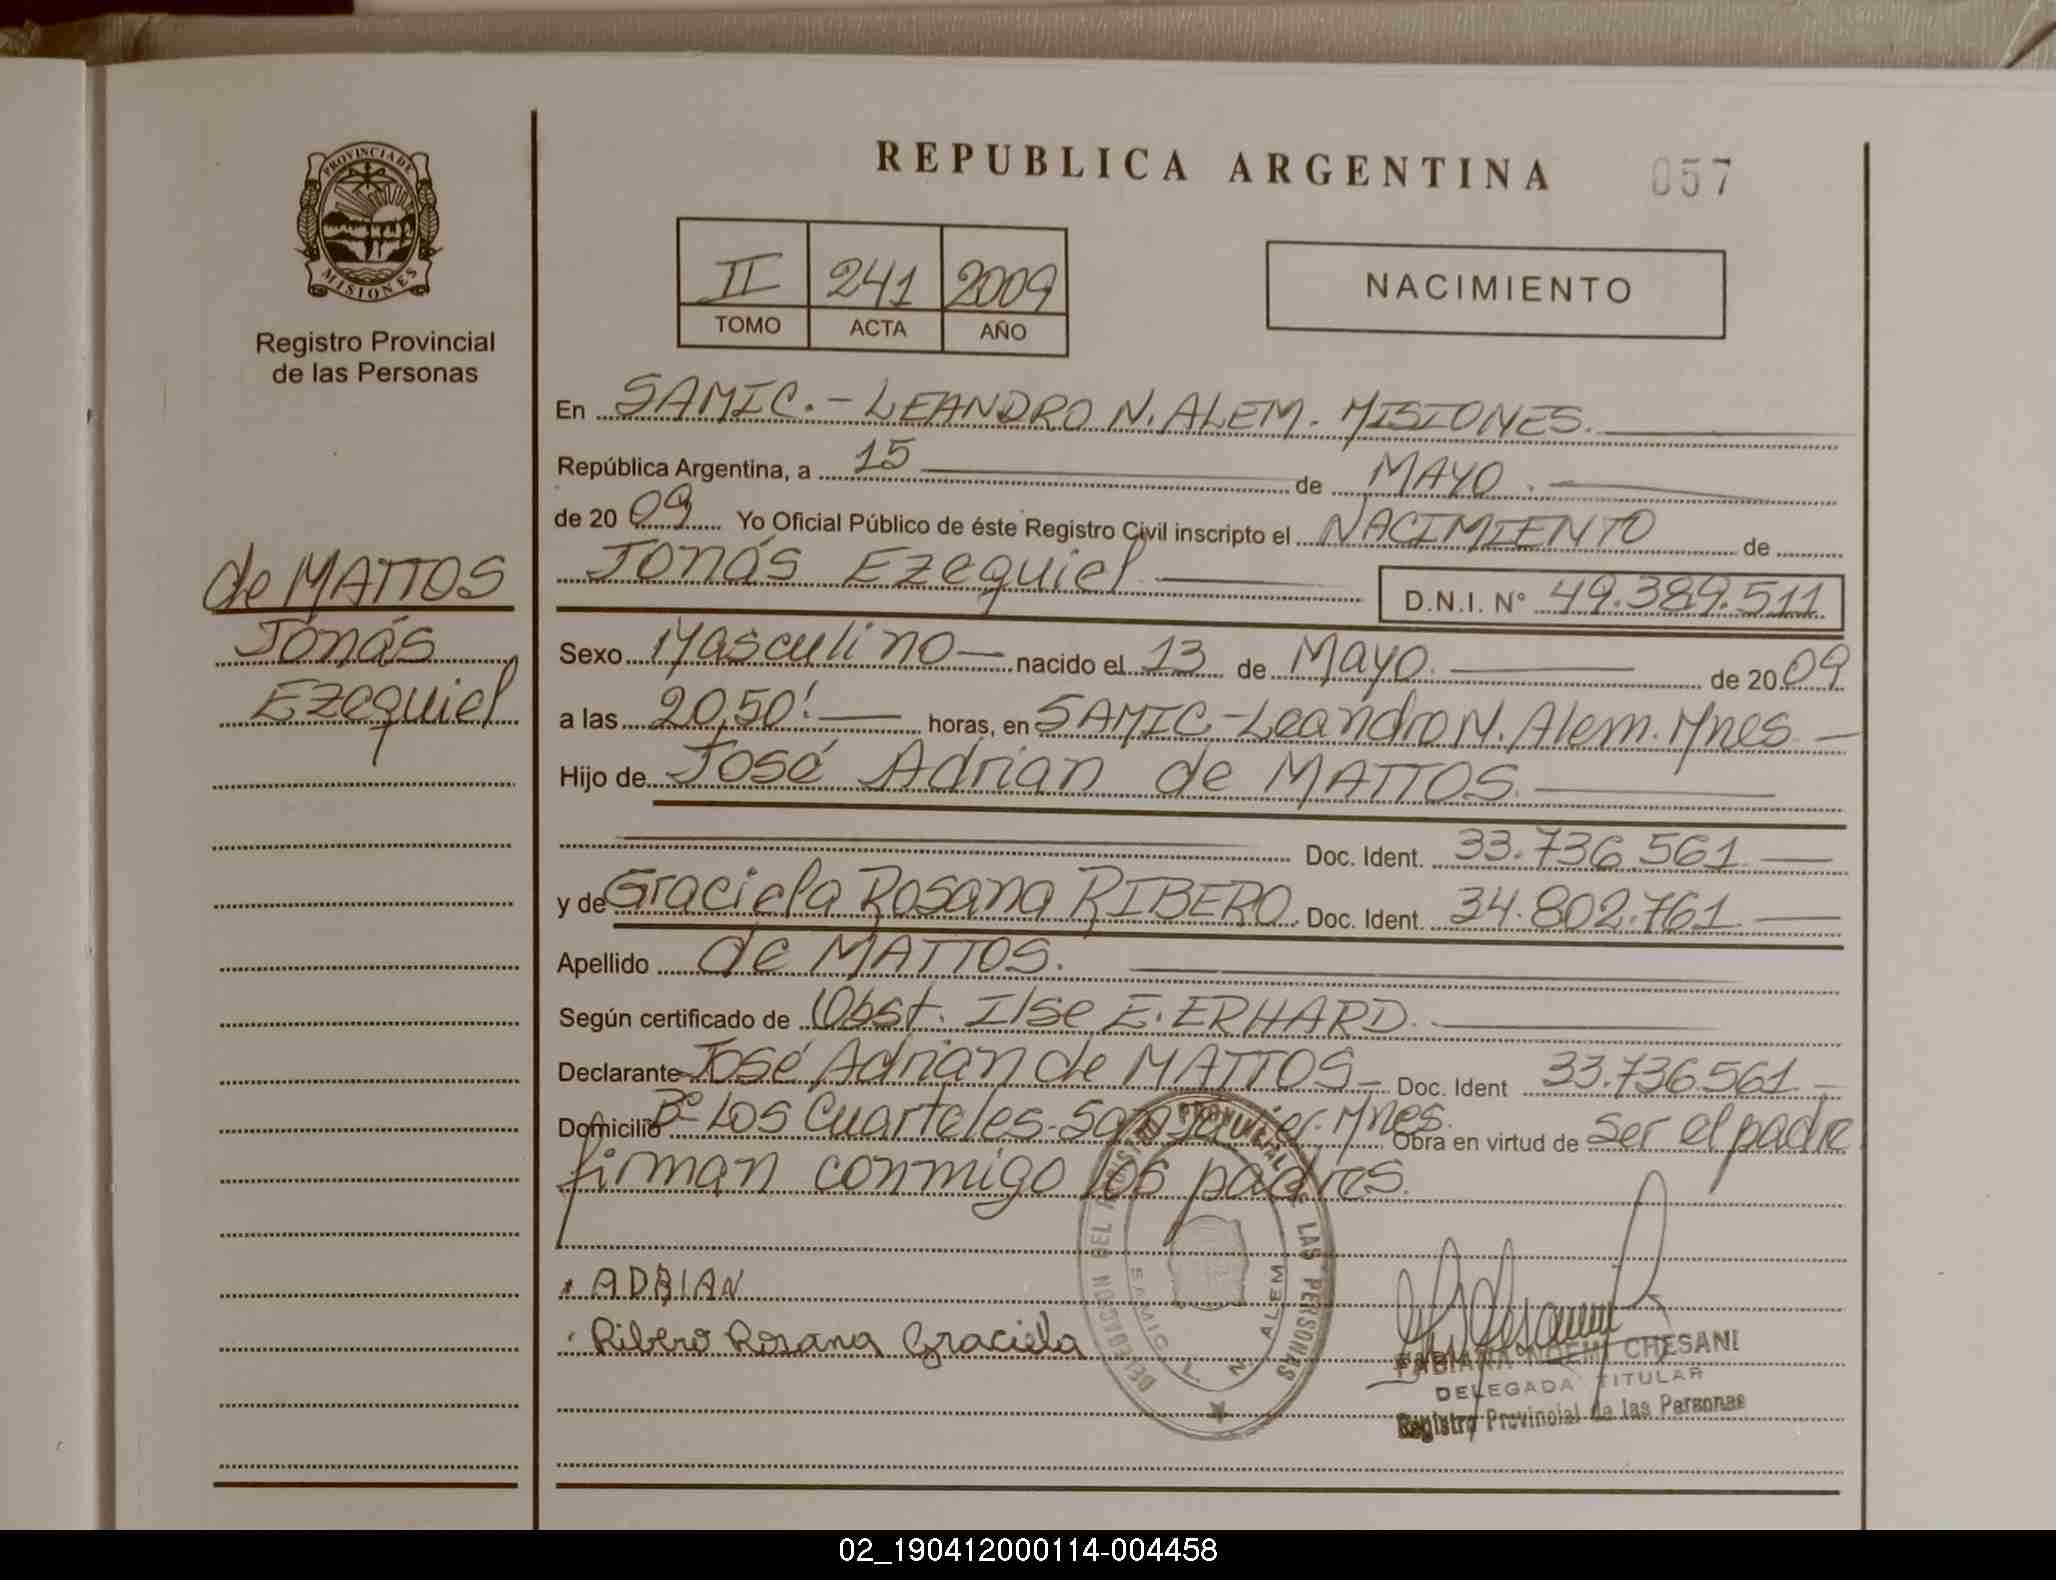 REPUBLICA ARGENTINA 057
PROVINCIA DE
MISIONES
Registro Provincial
de las Personas
II 241 2009
TOMO ACTA AÑO
NACIMIENTO
En SAMIC.- LEANDRO N. ALEM. MISIONES.
República Argentina, a 15 de MAYO.
de 20 09 Yo Oficial Público de éste Registro Civil inscripto el NACIMIENTO de
Jonás Ezequiel D.N.I. N° 49.389.511
de MATTOS
Jonás
Ezequiel
Sexo Masculino nacido el 13 de Mayo. de 20 09
a las 20,50' horas, en SAMIC-Leandro N. Alem. Mnes
Hijo de José Adrian de MATTOS.
Doc. Ident. 33.736.561
y de Graciela Rosana RIBERO. Doc. Ident. 34.802.761
Apellido de MATTOS.
Según certificado de Obst. Ilse E. ERHARD.
Declarante José Adrian de MATTOS Doc. Ident 33.736.561
Domicilio B° Los Cuarteles. San Javier. Mnes. Obra en virtud de ser el padre
firman conmigo los padres.
ADRIAN
Ribero Rosana Graciela
PROVINCIAL DE LAS PERSONAS
SAMIC L N ALEM
FABIANA NOEMI CHESANI
DELEGADA TITULAR
Registro Provincial de las Personas
02_190412000114-004458